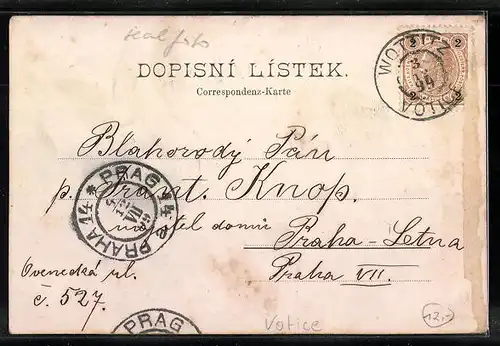 real foto
DOPISNÍ LÍSTEK.
Correspondenz-Karte
2 2
WOTITZ
VOTICE
Blahorodý Pán
p. Frant. Knop.
majitel domu
Praha-Letna
Praha VII.
Ovenecká ul.
č. 527.
PRAG 14 * PRAHA 14
PRAG
Votice
12,-